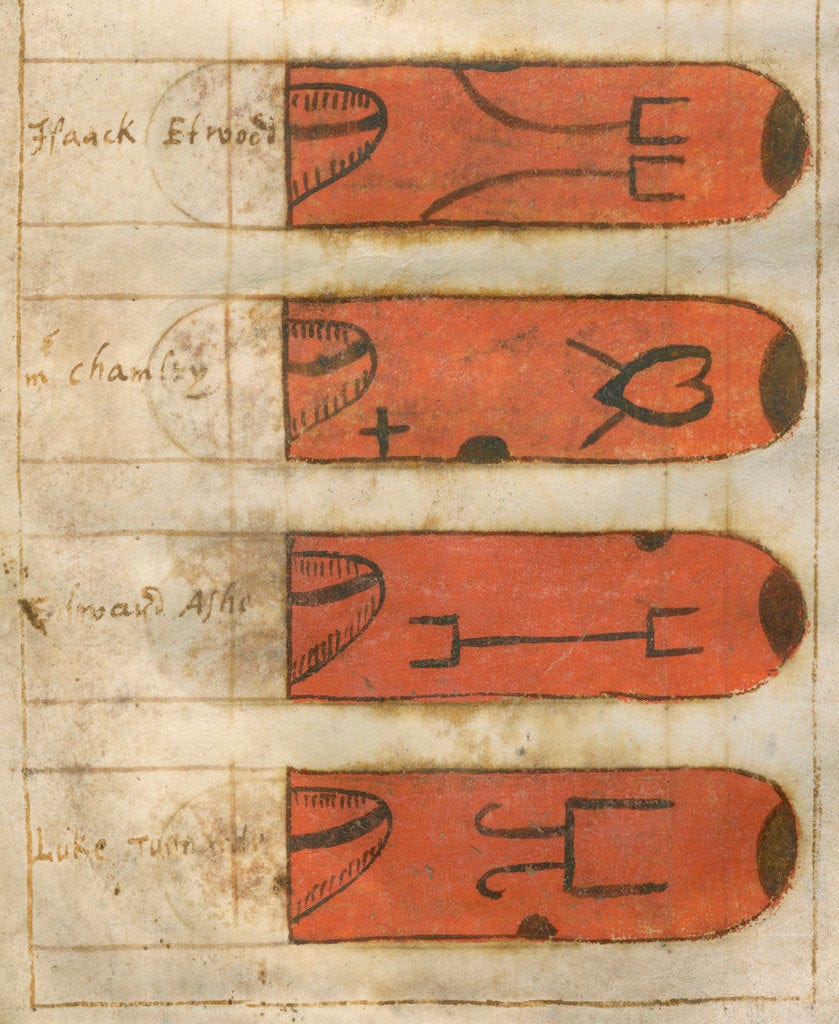 Isaack Etwood
mr chamley
Edward Ashe
Luke